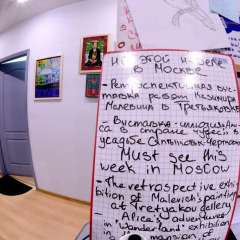 НА ЭТОЙ НЕДЕЛЕ
В МОСКВЕ
- Ретроспективная выс
тавка работ Казимира
Малевича в Третьяковке
- Выставка
са в стране чудес" в
усадьбе
Must see this
week in Moscow
- The retrospective exhi
bition of Malevich's painting
at Tretyakov gallery
- "Alice's adventures
in Wonderland" exhibition
in mansion of